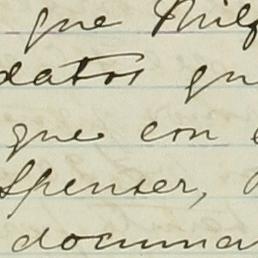 que Milf
datos qu
que con
Spenser,
docume